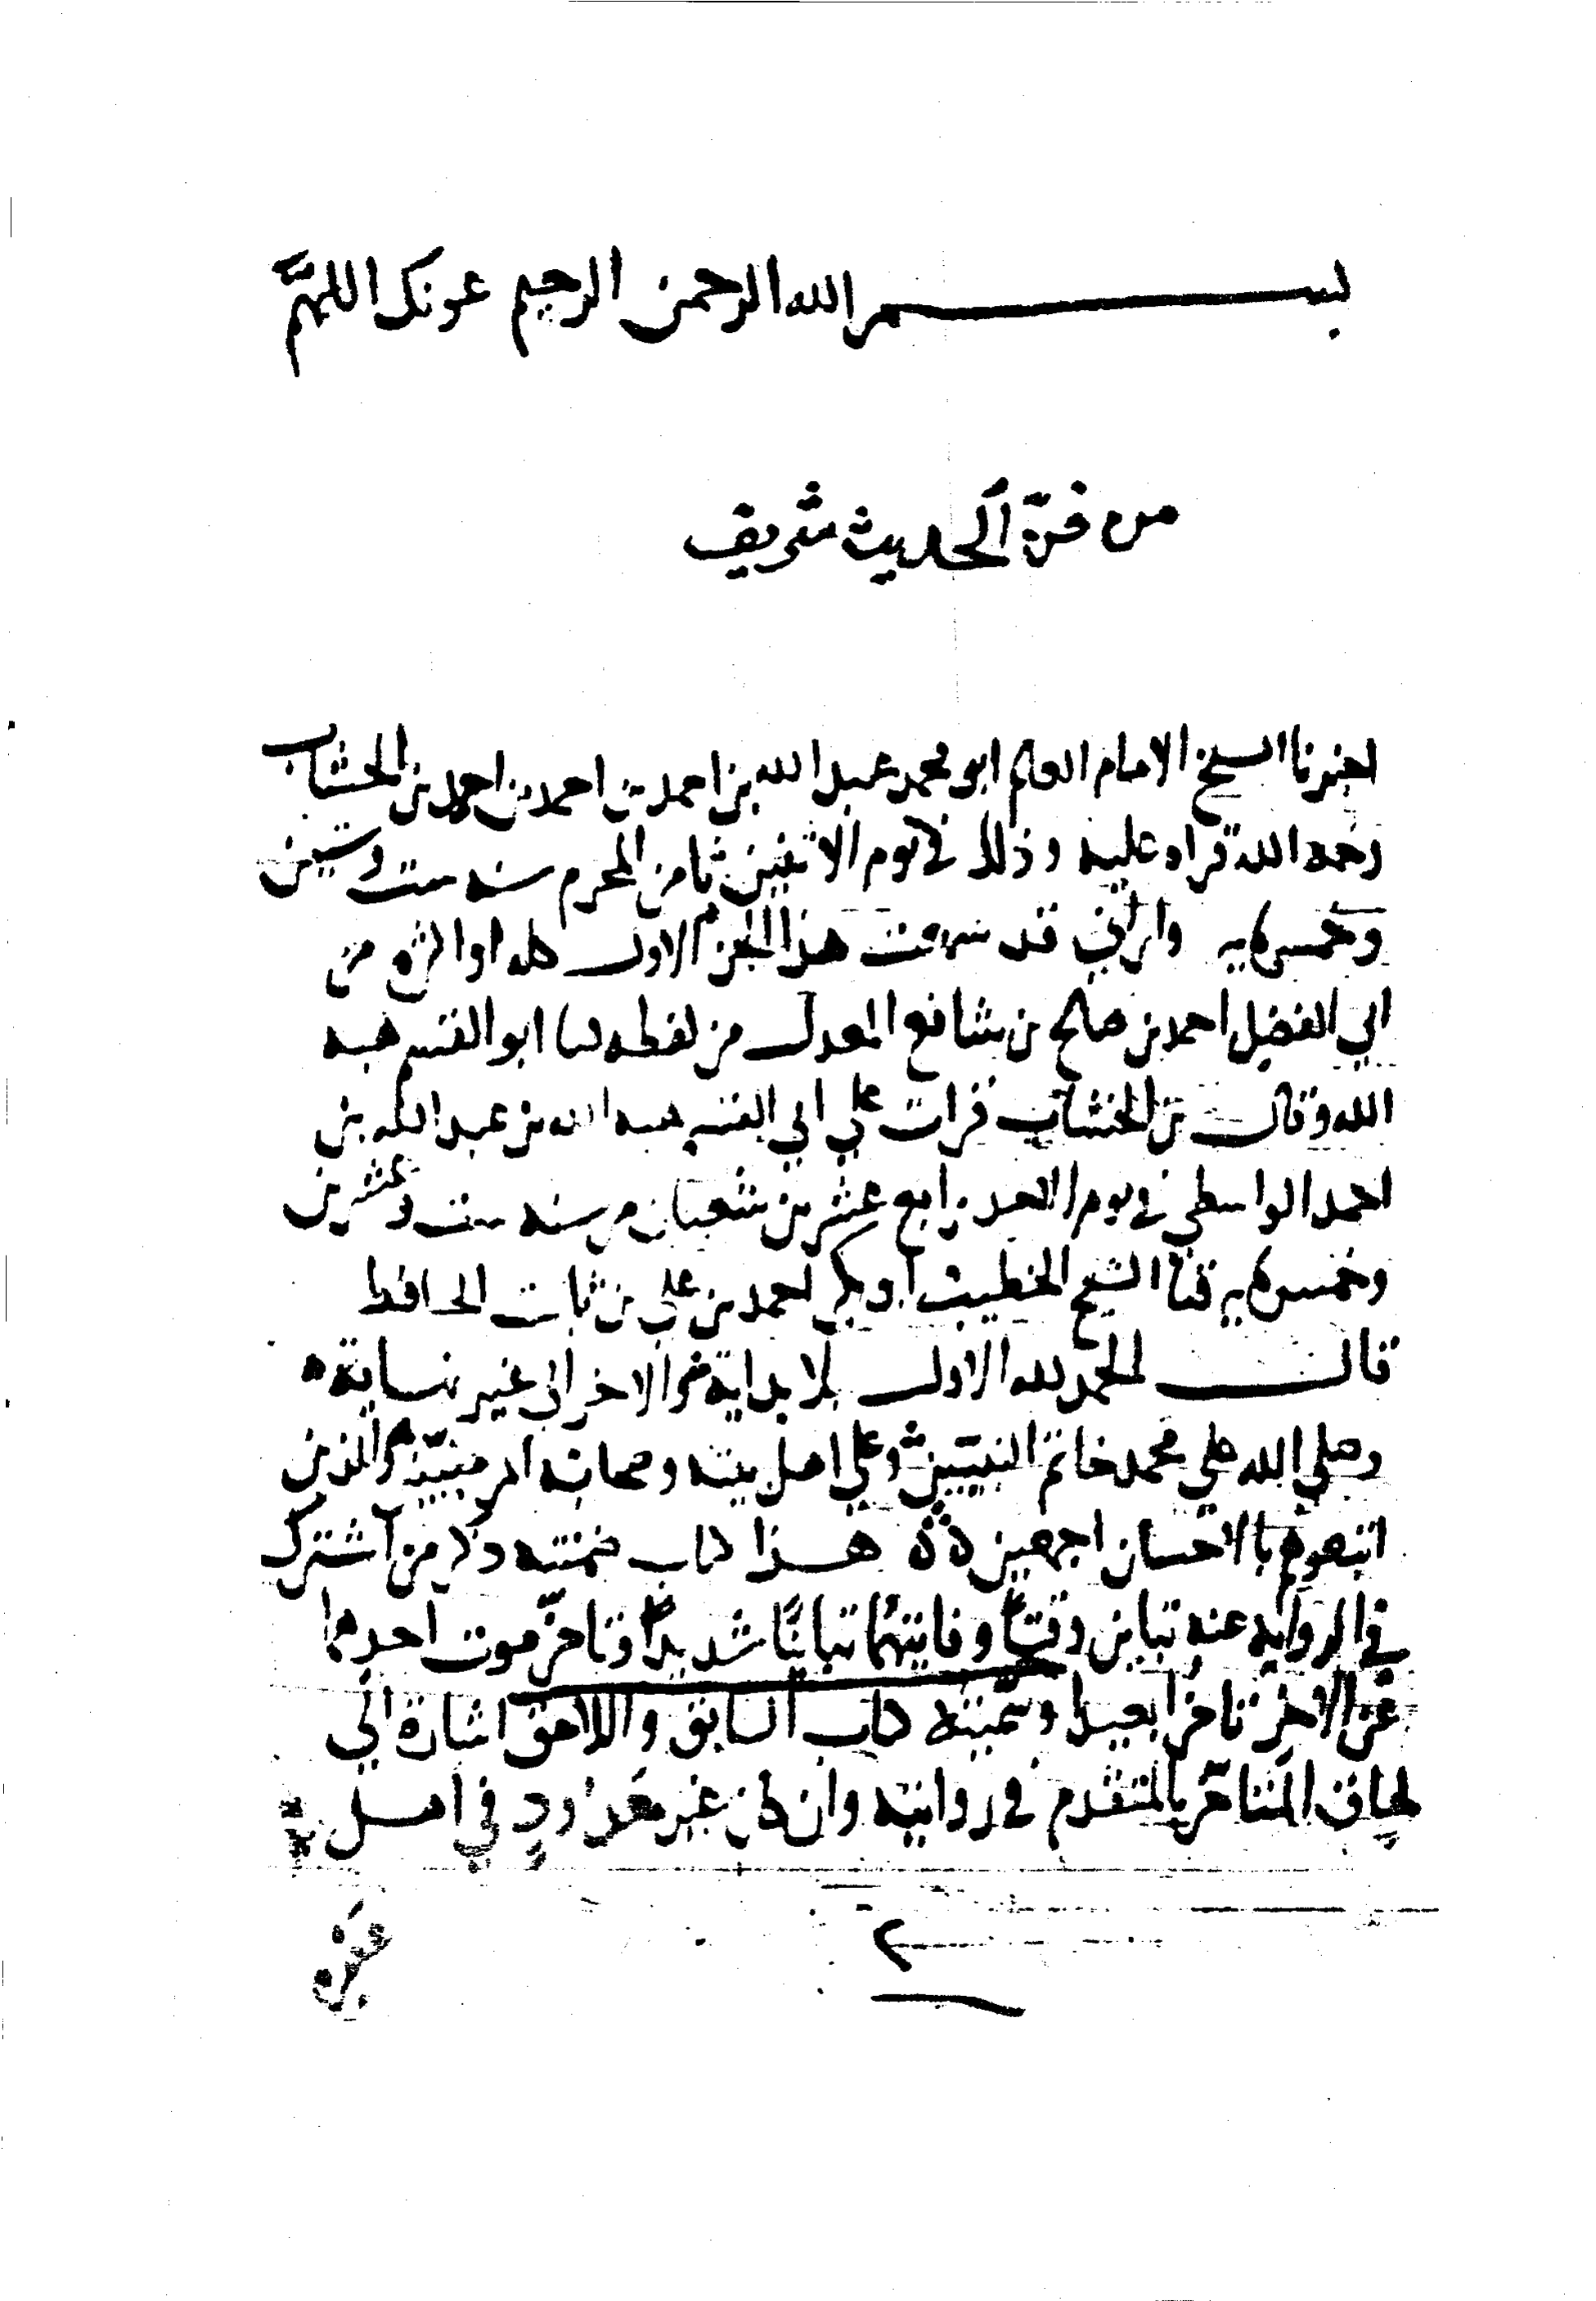 بسم الله الرحمن الرحيم عونك اللهم
من فن الحديث شريف
اخبرنا الشيخ الامام العالم ابو محمد عبد الله بن احمد بن احمد بن احمد بن الخشاب
رحمه الله قراه عليه وذلك في يوم الاثنين ثامن المحرم سنه ست وستين
وخمسمايه واراني قد سمعت هذا الجزء الاول كله او اكثره من
ابي الفضل احمد بن صالح بن شافع المعدل من لفظه ابو القسم هبه
الله وقال بن الخشاب قرات على ابي القسم هبه الله بن عبد الله بن
احمد الواسطي في يوم الاحد رابع عشرين شعبان من سنه ست وعشرين
وخمسمايه ثنا الشيخ الخطيب ابو بكر احمد بن علي بن ثابت الحافظ
قال الحمد لله الاول بلا بداية والاخر الى غير نهاية
وصلى الله على محمد خاتم النبيين وعلى اهل بيته وصحابته المرضيين والذين
اتبعوهم بالاحسان اجمعين هذا كتاب ضمنته ذكر من اشترك
في الرواية عنه تباين وقت وفاتيهما تباينا شديدا وتاخر موت احدهما
عن الاخر تاخرا بعيدا وسميته كتاب السابق واللاحق اشارة الى
لحاق المتاخر بالمتقدم في روايته وان كان غير معدود في اهل
٢